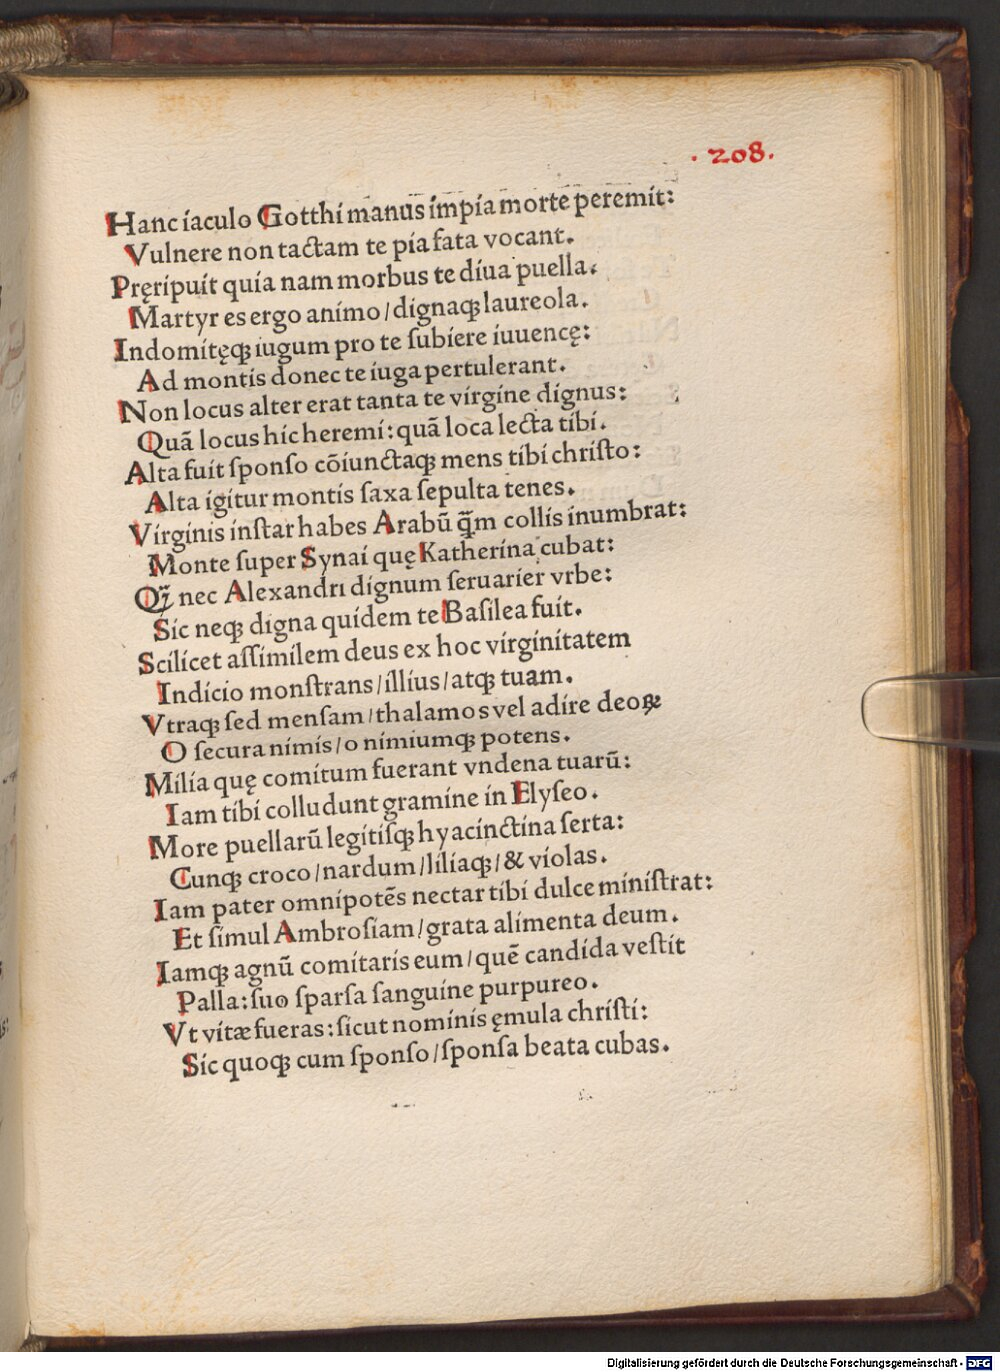 . 208.
Hanc iaculo Gotthi manus impia morte peremit:
Vulnere non tactam te pia fata vocant.
Pręripuit quia nam morbus te diua puella.
Martyr es ergo animo/dignaqꝫ laureola.
Indomitęqꝫ iugum pro te ſubiere iuuencę:
Ad montis donec te iuga pertulerant.
Non locus alter erat tanta te virgine dignus:
Quã locus hic heremi: quã loca lecta tibi.
Alta fuit ſponſo cõiunctaqꝫ mens tibi chriſto:
Alta igitur montis ſaxa ſepulta tenes.
Virginis inſtar habes Arabũ q̃m collis inumbrat:
Monte ſuper Synai quę Katherina cubat:
Qꝫ̃ nec Alexandri dignum ſeruarier vrbe:
Sic neqꝫ digna quidem te Baſilea fuit.
Scilicet aſſimilem deus ex hoc virginitatem
Indicio monſtrans/illius/atqꝫ tuam.
Vtraqꝫ ſed menſam/thalamos vel adire deoꝝ
O ſecura nimis/o nimiumqꝫ potens.
Milia quę comitum fuerant vndena tuarũ:
Iam tibi colludunt gramine in Elyſeo.
More puellarũ legitiſqꝫ hyacinctina ſerta:
Cunqꝫ croco/nardum/liliaqꝫ/& violas.
Iam pater omnipotẽs nectar tibi dulce miniſtrat:
Et ſimul Ambroſiam/grata alimenta deum.
Iamqꝫ agnũ comitaris eum/quẽ candida veſtit
Palla: ſuo ſparſa ſanguine purpureo.
Vt vitæ fueras: ſicut nominis ęmula chriſti:
Sic quoqꝫ cum ſponſo/ſponſa beata cubas.
Digitalisierung gefördert durch die Deutsche Forschungsgemeinschaft - DFG